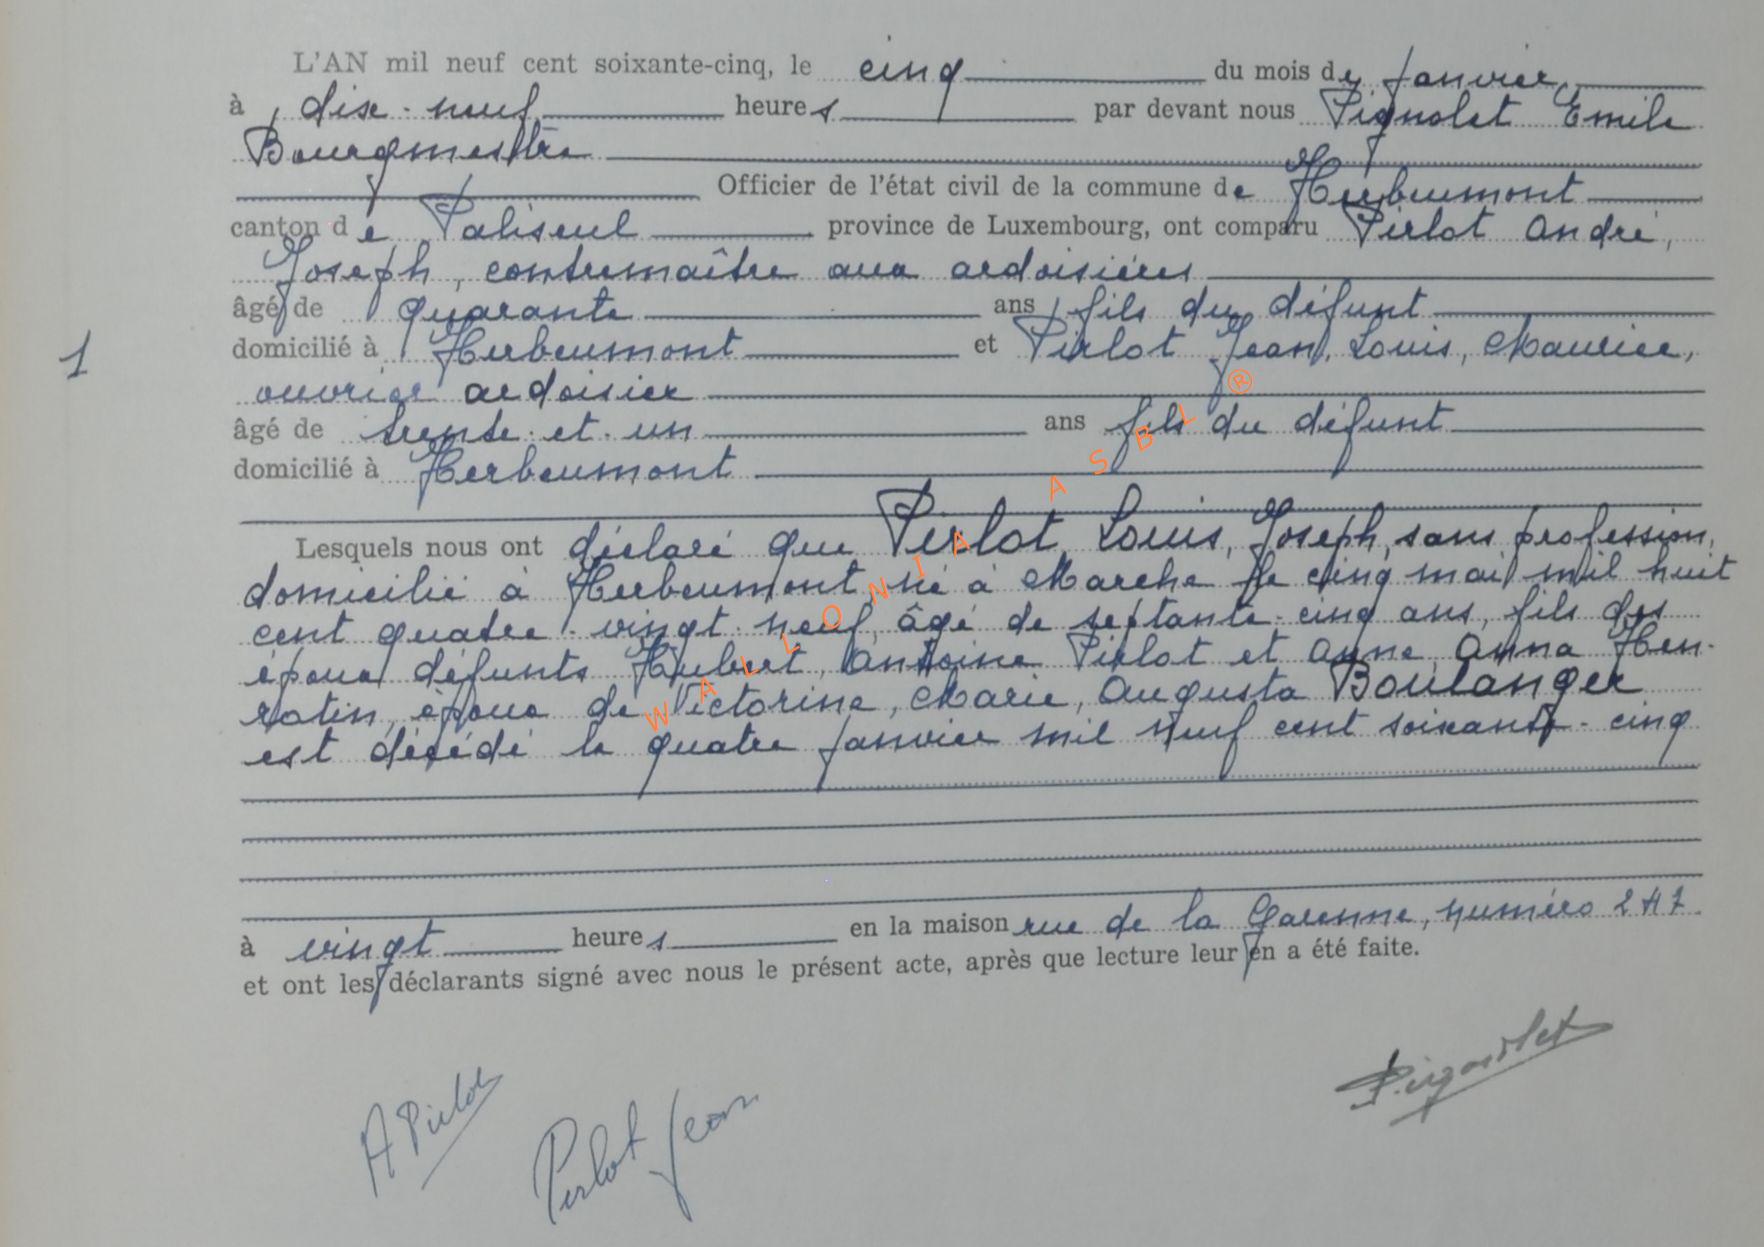 L'AN mil neuf cent soixante-cinq, le cinq du mois de janvier,
à dix-neuf heures par devant nous Pignolet Emile
Bourgmestre
Officier de l'état civil de la commune de Herbeumont
canton de Paliseul province de Luxembourg, ont comparu Pirlot André,
Joseph, contremaître aux ardoisières
âgé de quarante ans, fils du défunt
domicilié à Herbeumont et Pirlot Jean, Louis, Maurice,
1
ouvrier ardoisier
âgé de trente-et-un ans fils du défunt
domicilié à Herbeumont
Lesquels nous ont déclaré que Pirlot, Louis, Joseph, sans profession,
domicilié à Herbeumont né à Marche le cinq mai mil huit
cent quatre-vingt-neuf, âgé de septante-cinq ans, fils des
époux défunts Hubert, Antoine Pirlot et Anne, Anna Hen-
rotin, époux de Victorine, Marie, Augusta Boulanger
est décédé le quatre janvier mil neuf cent soixante-cinq
à vingt heures en la maison rue de la Garenne, numéro 247
et ont les déclarants signé avec nous le présent acte, après que lecture leur en a été faite.
A Pirlot
Pirlot Jean
Pignolet
WALLONIA ASBL ®